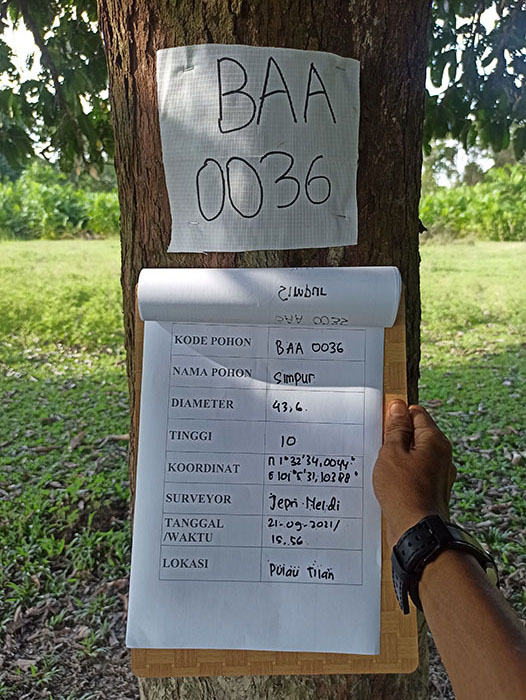 BAA
0036
KODE POHON BAA 0036
NAMA POHON Simpur
DIAMETER 43,6.
TINGGI 10
KOORDINAT N 1°32'34,0044"
E 101°5'31,10388"
SURVEYOR Jepri Meldi
TANGGAL 21-09-2021/
/WAKTU 15.56
LOKASI Pulau Tilan